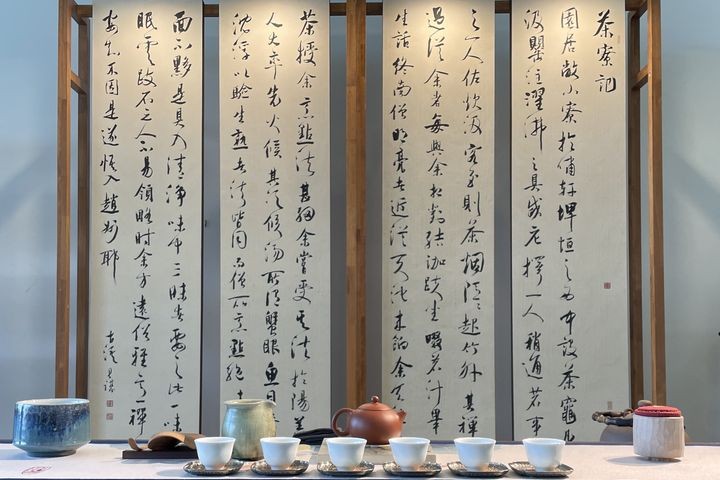 茶寮記
園居敞小寮於嘯軒埤垣之西中設茶竈凡
汲罌注濯沸之具咸庀擇一人稍通茗事
之一人佐炊汲客至則茶烟隱隱起竹外其禪
過從余者每與余相對結跏趺坐啜茗汁舉
生話終南僧明亮者近從天池來餉余天
茶授余烹點法甚細余嘗受其法於陽羨
人大率先火候其次候湯所謂蟹眼魚目
沈浮以驗生熟者法皆同而僧所烹點絕
面不黟是具入清淨味中三昧者要之此一味
眠雲跂石之人不易領略時余方遠俗雅意禪
安知不因是遂悟入趙州耶